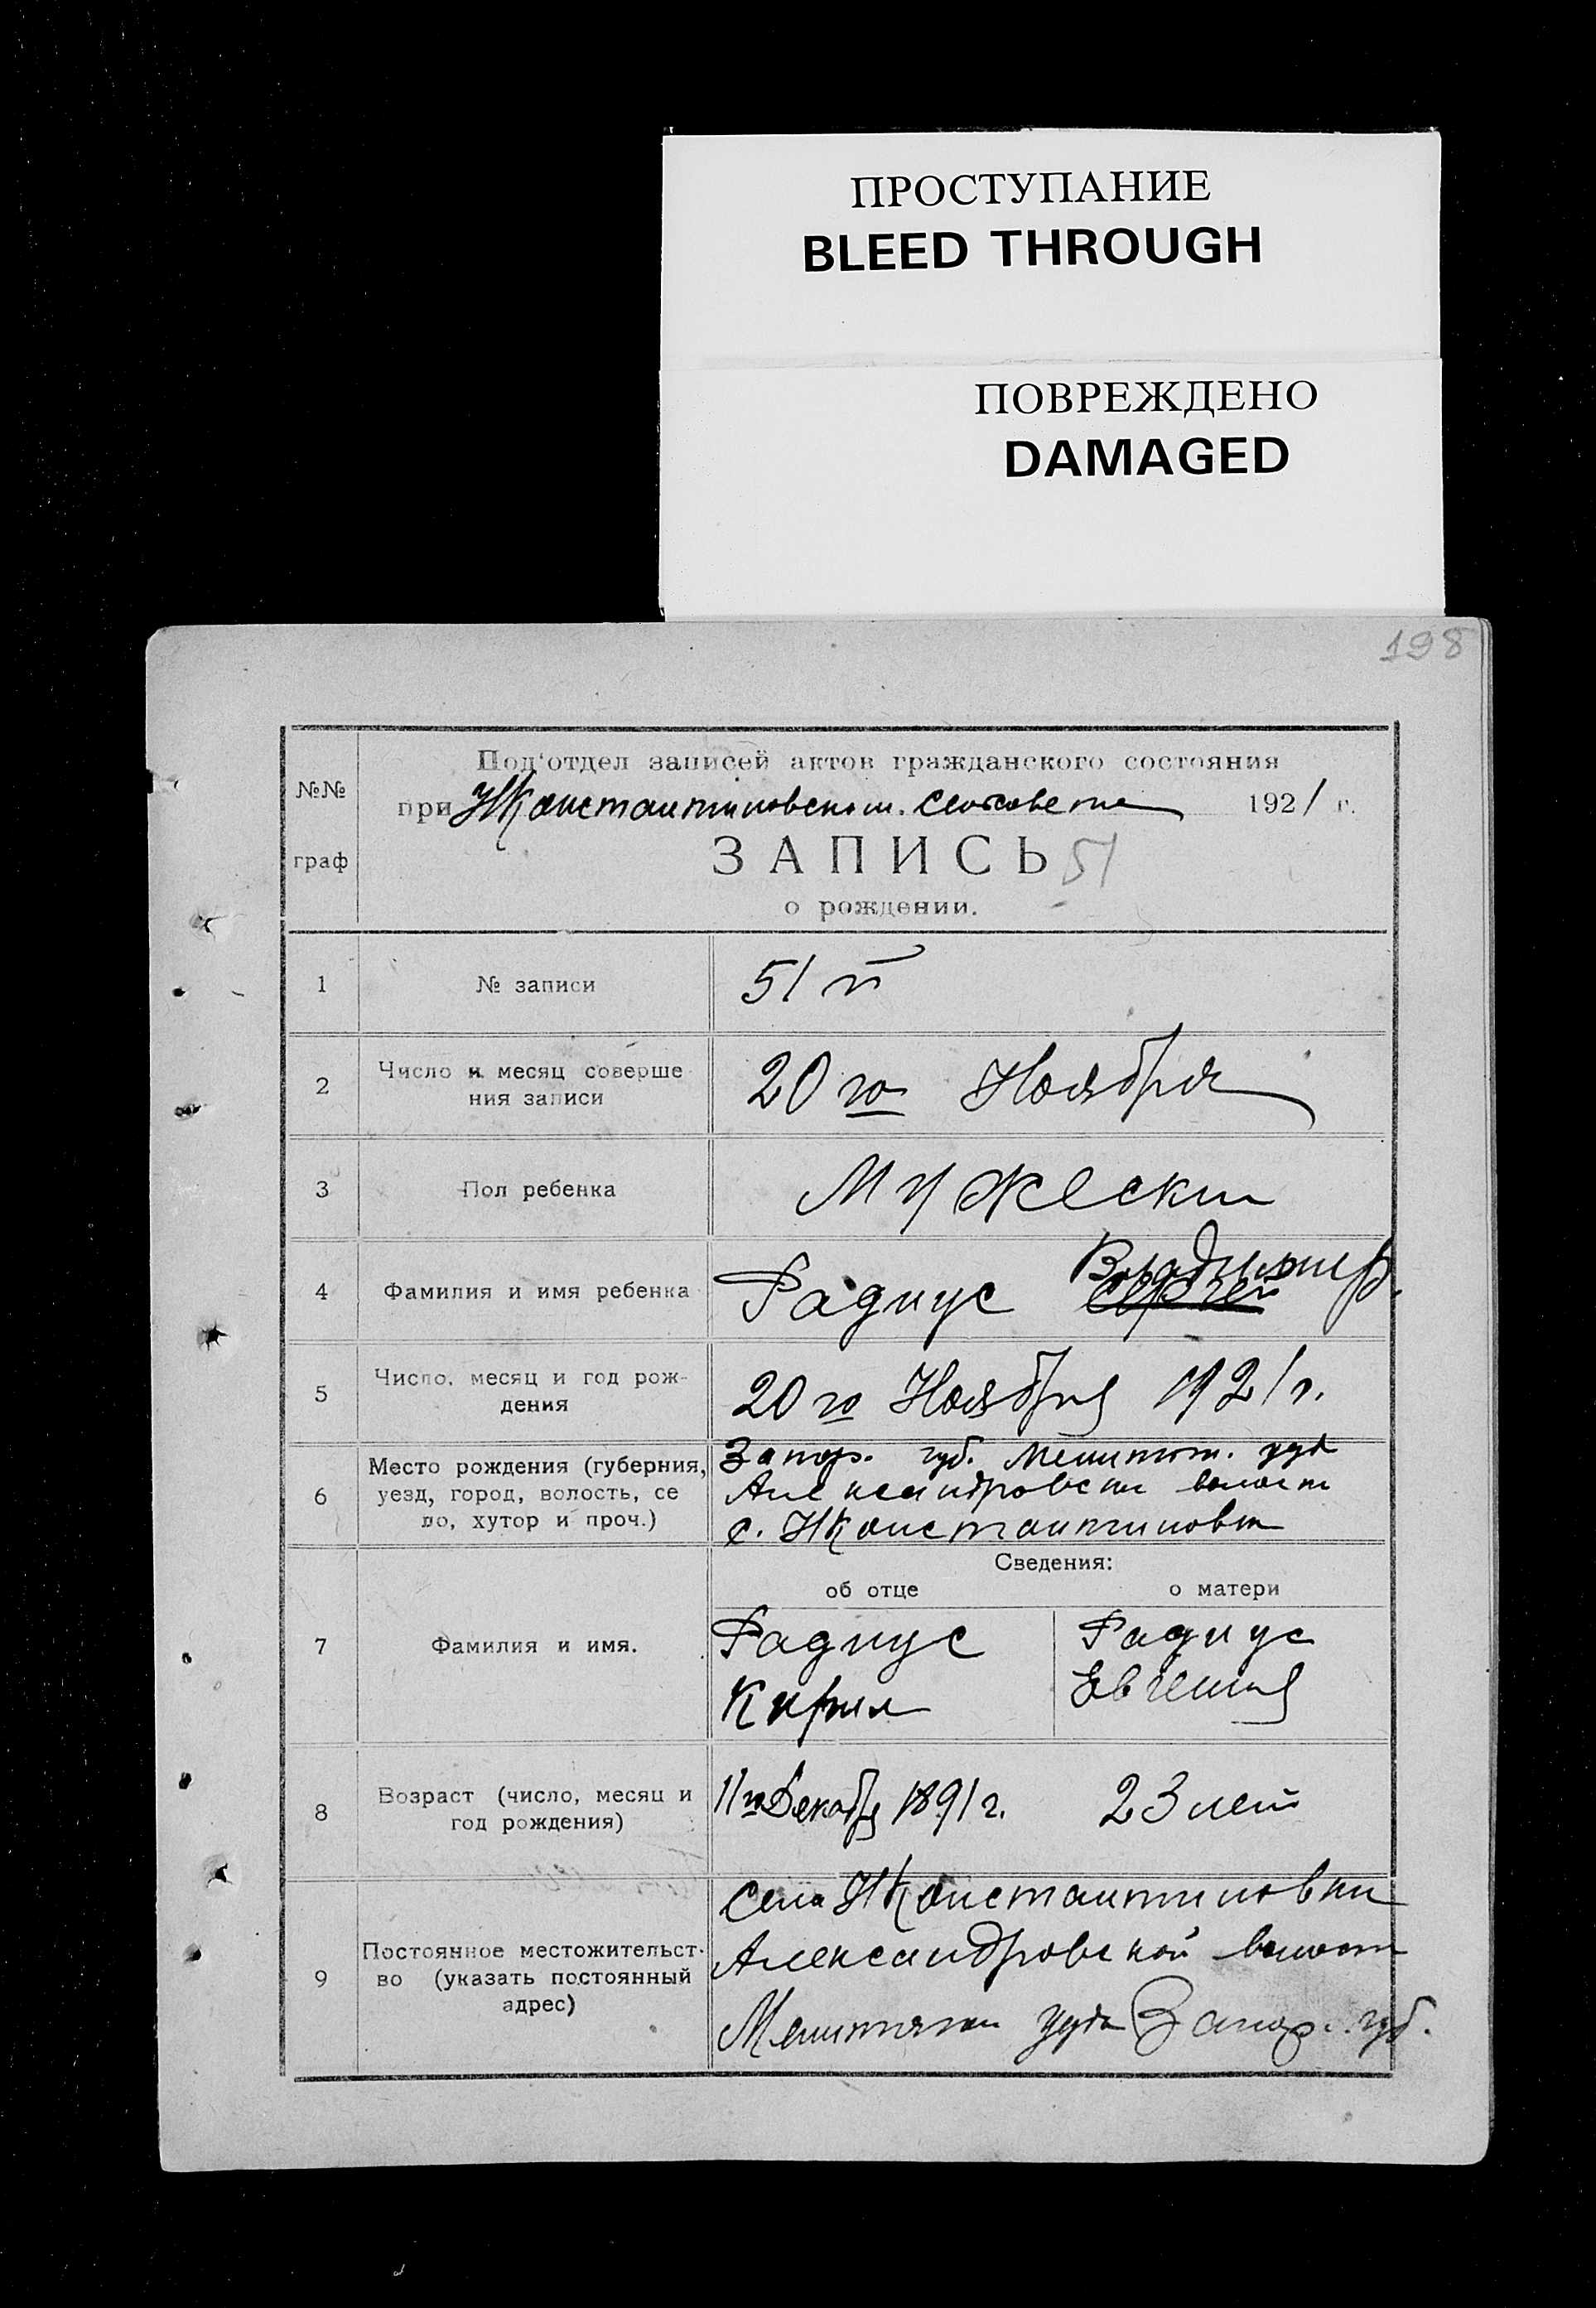 ПРОСТУПАНИЕ
BLEED THROUGH
ПОВРЕЖДЕНО
DAMAGED
198
№№
граф
Под'отдел записей актов гражданского состояния
при НКонстантиновском. сельсовете 1921 г.
ЗАПИСЬ 51
о рождении.
1 № записи 51 й
2 Число и месяц соверше
ния записи
20го Ноября
3 Пол ребенка Мужески
4 Фамилия и имя ребенка Радиус Сергей Владимир.
5 Число, месяц и год рож-
дения
20го Ноября 1921г.
6 Место рождения (губерния,
уезд, город, волость, се
ло, хутор и проч.)
Запор. губ. Мелитоп. уезд
Александровски волости
с. НКонстантиновки
Сведения:
об отце о матери
7 Фамилия и имя.
Радиус
Кирил
Радиус
Евгения
8 Возраст (число, месяц и
год рождения)
11го Декабря 1891г. 23 лет
9 Постоянное местожительст-
во (указать постоянный
адрес)
Села НКонстантиновки
Александровской волости
Мелитопол уезда Запор. губ.